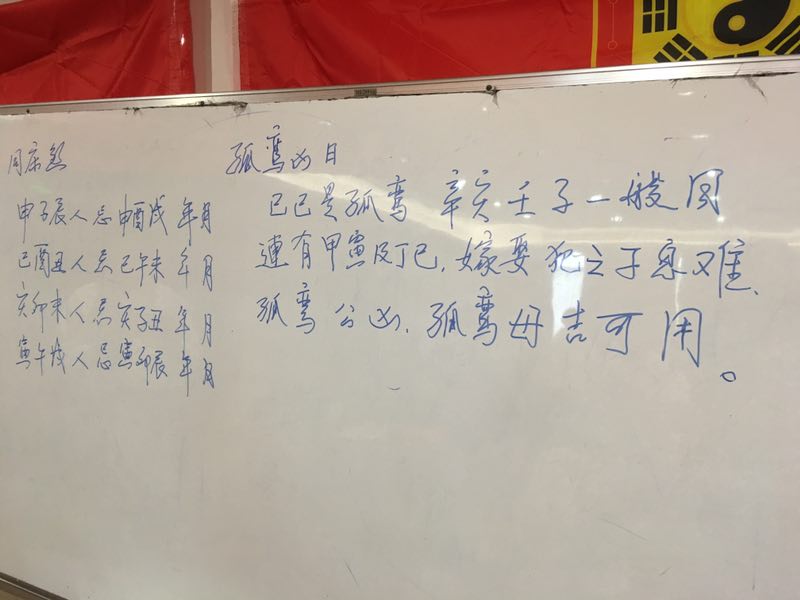 同床煞
申子辰人忌申酉戌年月
巳酉丑人忌巳午未年月
亥卯未人忌亥子丑年月
寅午戌人忌寅卯辰年月
孤鸾凶日
乙巳是孤鸾 辛亥壬子一般同
連有甲寅及丁巳.嫁娶犯之子息难.
孤鸾公凶.孤鸾母吉可用。